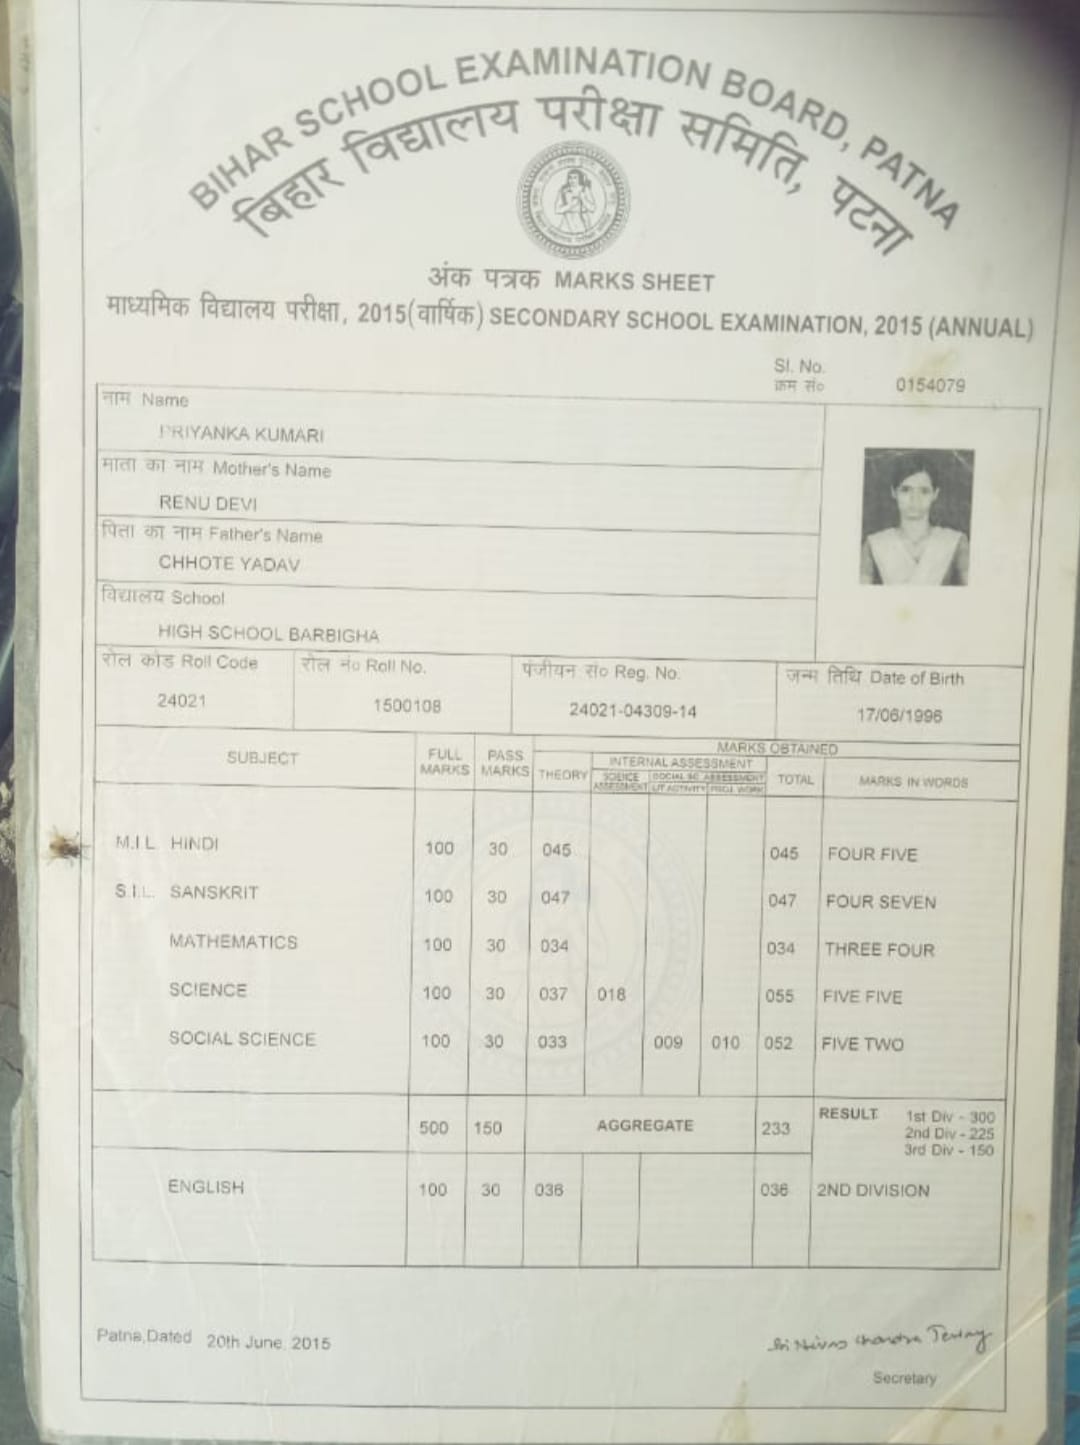 BIHAR SCHOOL EXAMINATION BOARD, PATNA
बिहार विद्यालय परीक्षा समिति, पटना
अंक पत्रक MARKS SHEET
माध्यमिक विद्यालय परीक्षा, 2015(वार्षिक) SECONDARY SCHOOL EXAMINATION, 2015 (ANNUAL)
Sl. No.
क्रम सं० 0154079
नाम Name
PRIYANKA KUMARI
माता का नाम Mother's Name
RENU DEVI
पिता का नाम Father's Name
CHHOTE YADAV
विद्यालय School
HIGH SCHOOL BARBIGHA
रोल कोड Roll Code रोल नं० Roll No. पंजीयन सं० Reg. No. जन्म तिथि Date of Birth
24021 1500108 24021-04309-14 17/06/1996
MARKS OBTAINED
SUBJECT FULL MARKS PASS MARKS THEORY INTERNAL ASSESSMENT TOTAL MARKS IN WORDS
M.I.L. HINDI 100 30 045 045 FOUR FIVE
S.I.L. SANSKRIT 100 30 047 047 FOUR SEVEN
MATHEMATICS 100 30 034 034 THREE FOUR
SCIENCE 100 30 037 018 055 FIVE FIVE
SOCIAL SCIENCE 100 30 033 009 010 052 FIVE TWO
500 150 AGGREGATE 233 RESULT 1st Div - 300
2nd Div - 225
3rd Div - 150
ENGLISH 100 30 036 036 2ND DIVISION
Patna,Dated 20th June, 2015
Secretary